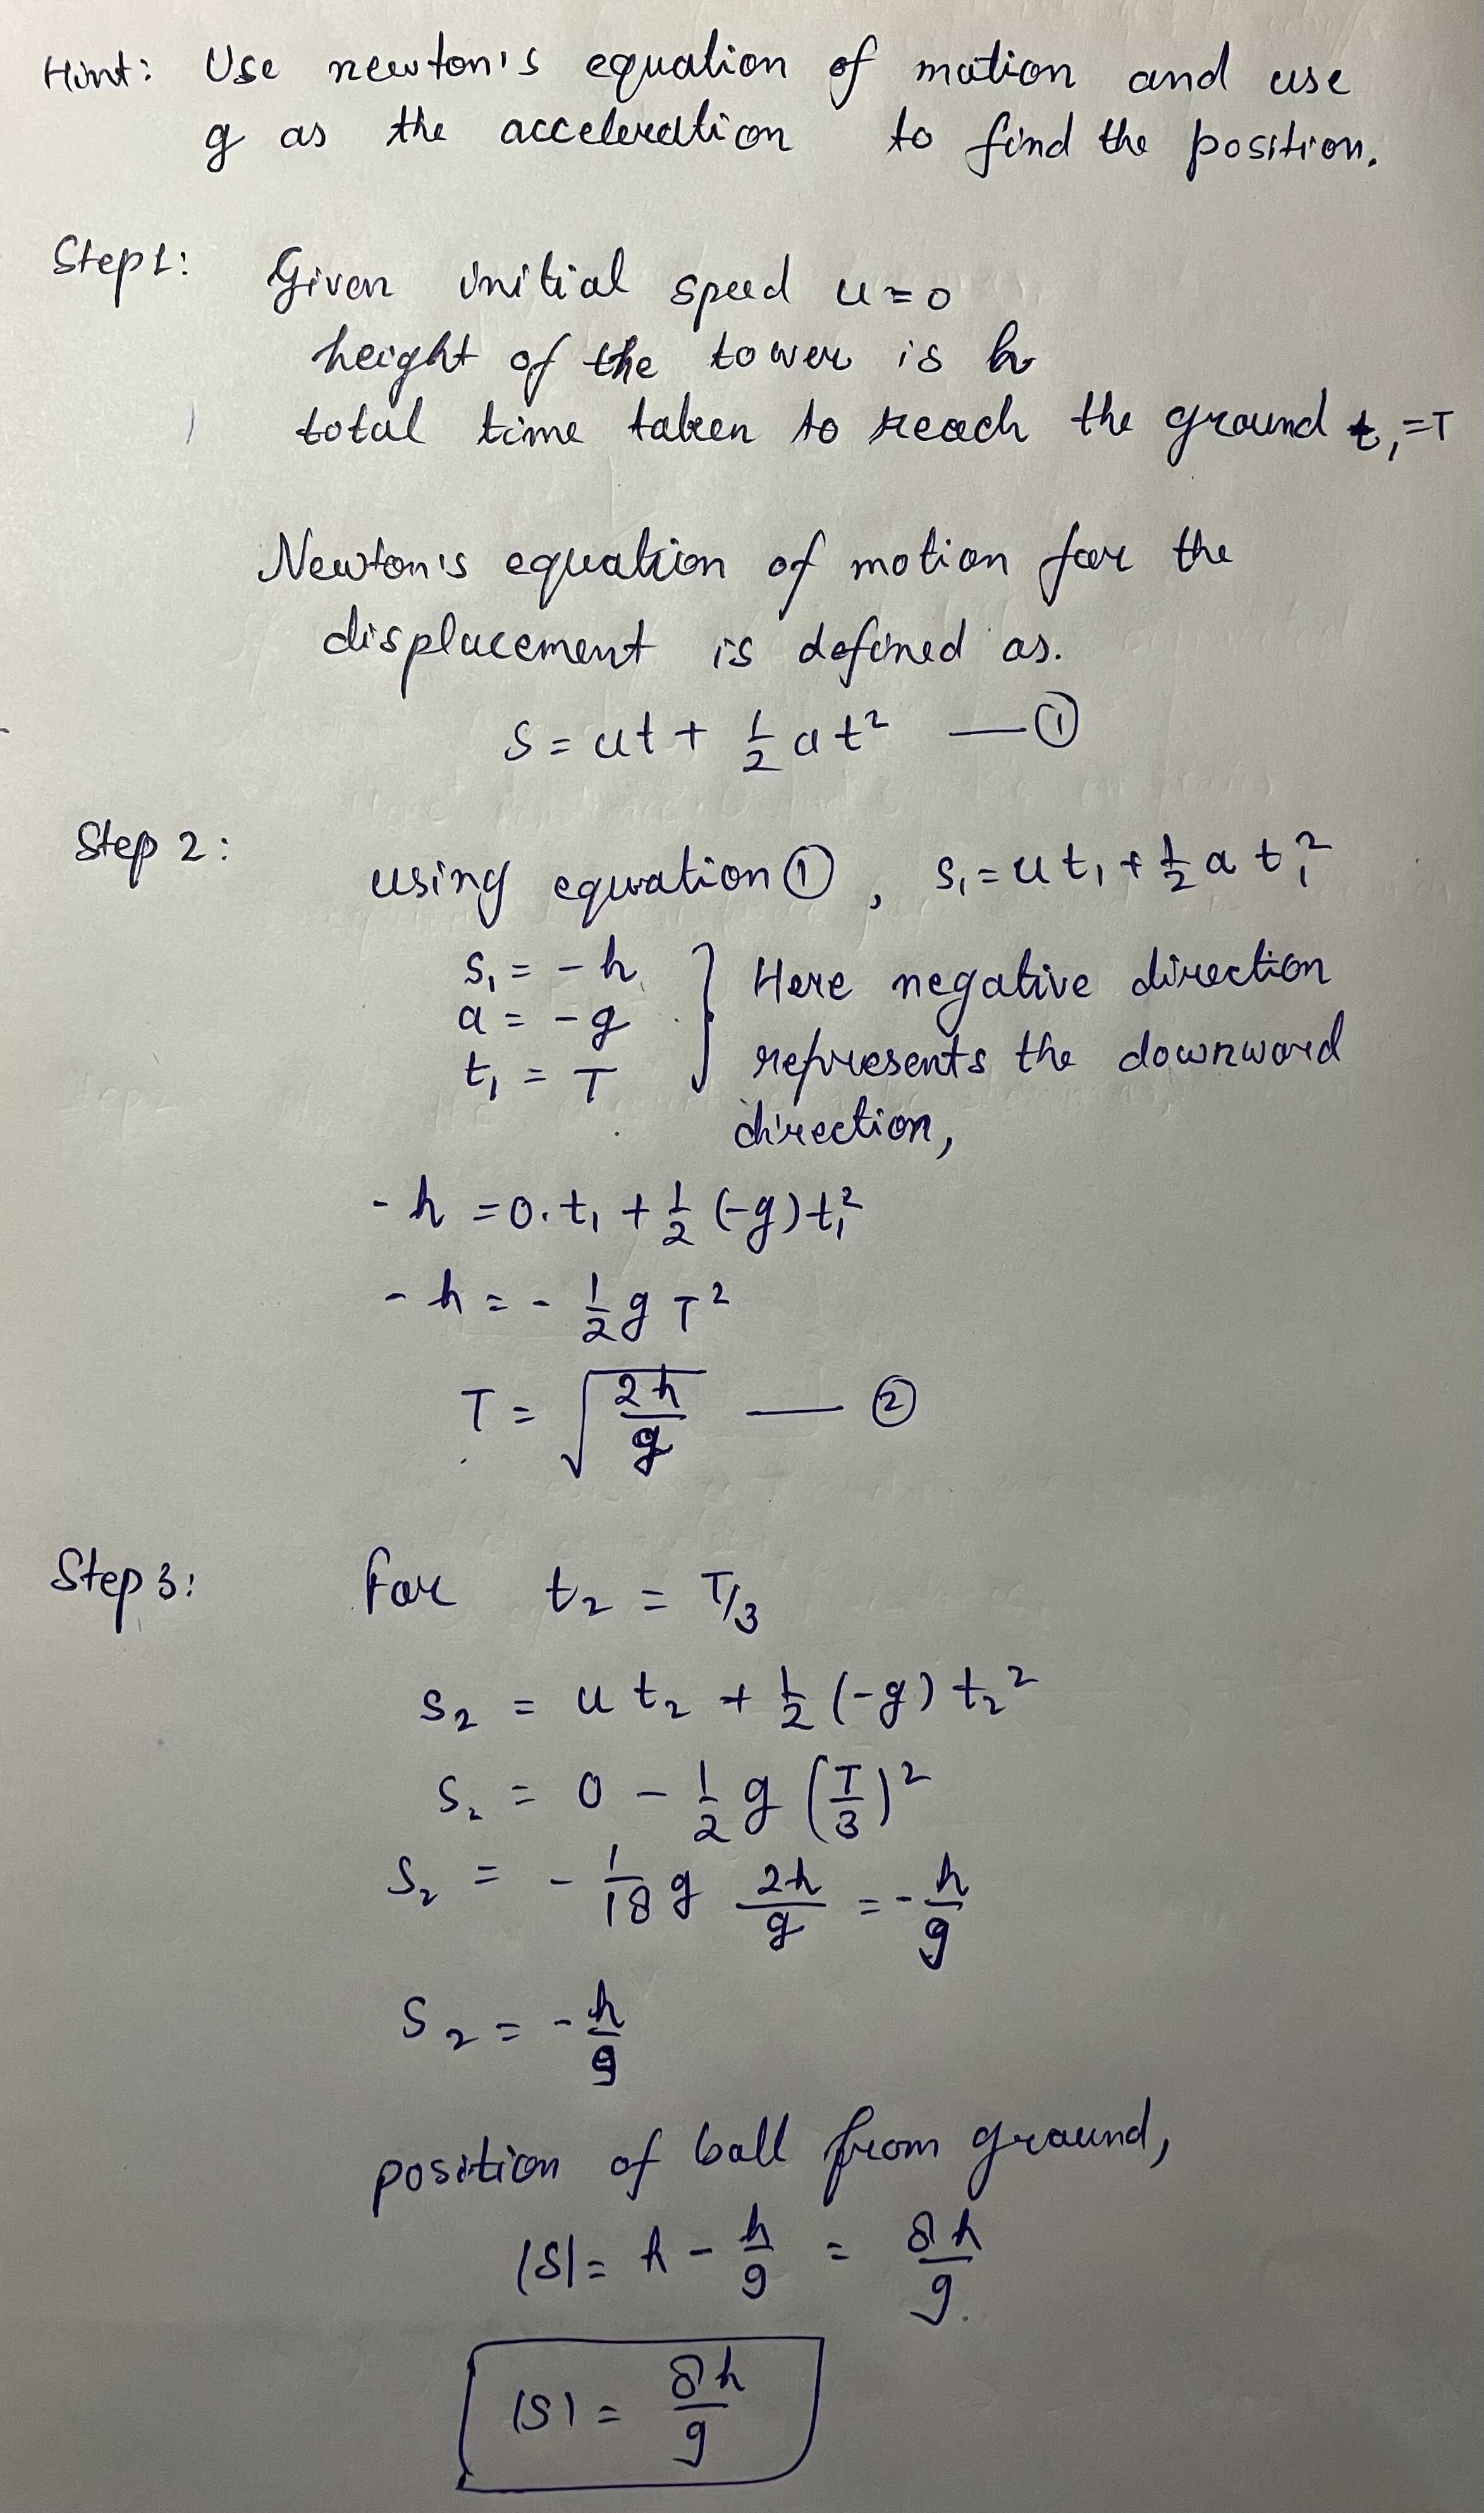 Hint: Use newton's equation of motion and use
g as the acceleration to find the position.
Step 1: Given initial speed u=0
height of the tower is h
total time taken to reach the ground t₁=T
Newton's equation of motion for the
displacement is defined as.
S = ut + 1/2 at² — ①
Step 2: using equation ①, S₁ = ut₁ + 1/2 a t₁²
S₁ = -h } Here negative direction
a = -g represents the downward
t₁ = T direction,
-h = 0.t₁ + 1/2 (-g) t₁²
-h = - 1/2 g T²
T = √(2h/g) — ②
Step 3: For t₂ = T/3
S₂ = u t₂ + 1/2 (-g) t₂²
S₂ = 0 - 1/2 g (T/3)²
S₂ = - 1/18 g 2h/g = - h/9
S₂ = - h/9
position of ball from ground,
|S| = h - h/9 = 8h/9.
|S| = 8h/9